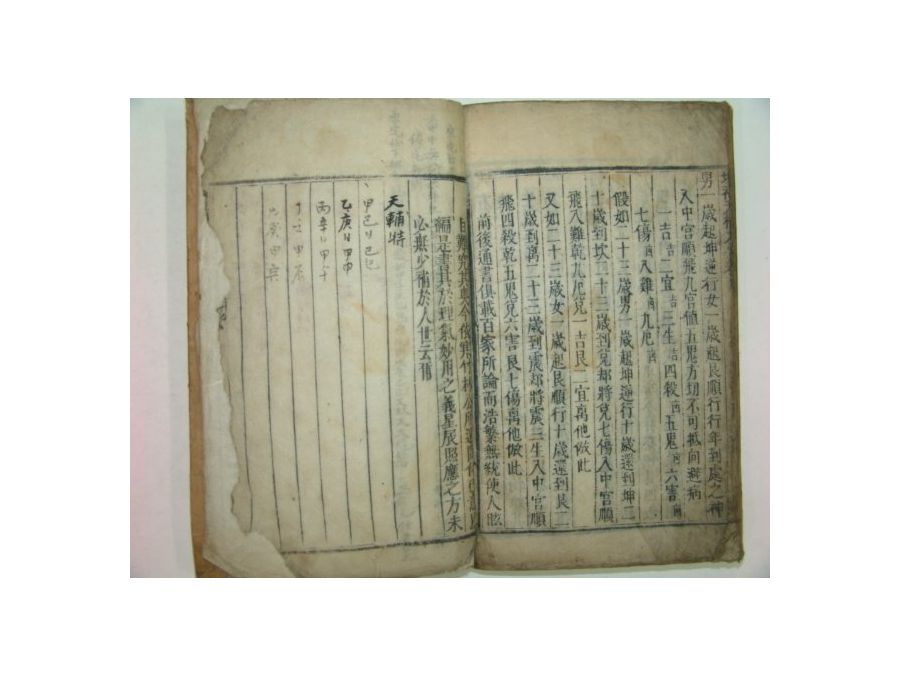 男一歲起坤逆行女一歲起艮順行行年到處之神
入中宮順飛九宮値五鬼方切不可抵向避病
一吉吉二宜吉三生吉四殺凶五鬼凶六害凶
七傷凶八難凶九厄凶
假如二十三歲男一歲起坤逆行十歲還到坤二
十歲到坎二十三歲到兌却將兌七傷入中宮順
飛八難乾九厄兌一吉艮二宜离他倣此
又如二十三歲女一歲起艮順行十歲還到艮二
十歲到离二十三歲到震却將震三生入中宮順
飛四殺乾五鬼兌六害艮七傷离他倣此
前後通書俱載百家所論而浩繁無統使人眩
目難究其
編是書其於理氣妙用之義星辰照應之方未
必無少補於人世云爾
天輔時
甲己日己巳
乙庚日甲申
丙辛日甲午
甲辰
癸甲寅